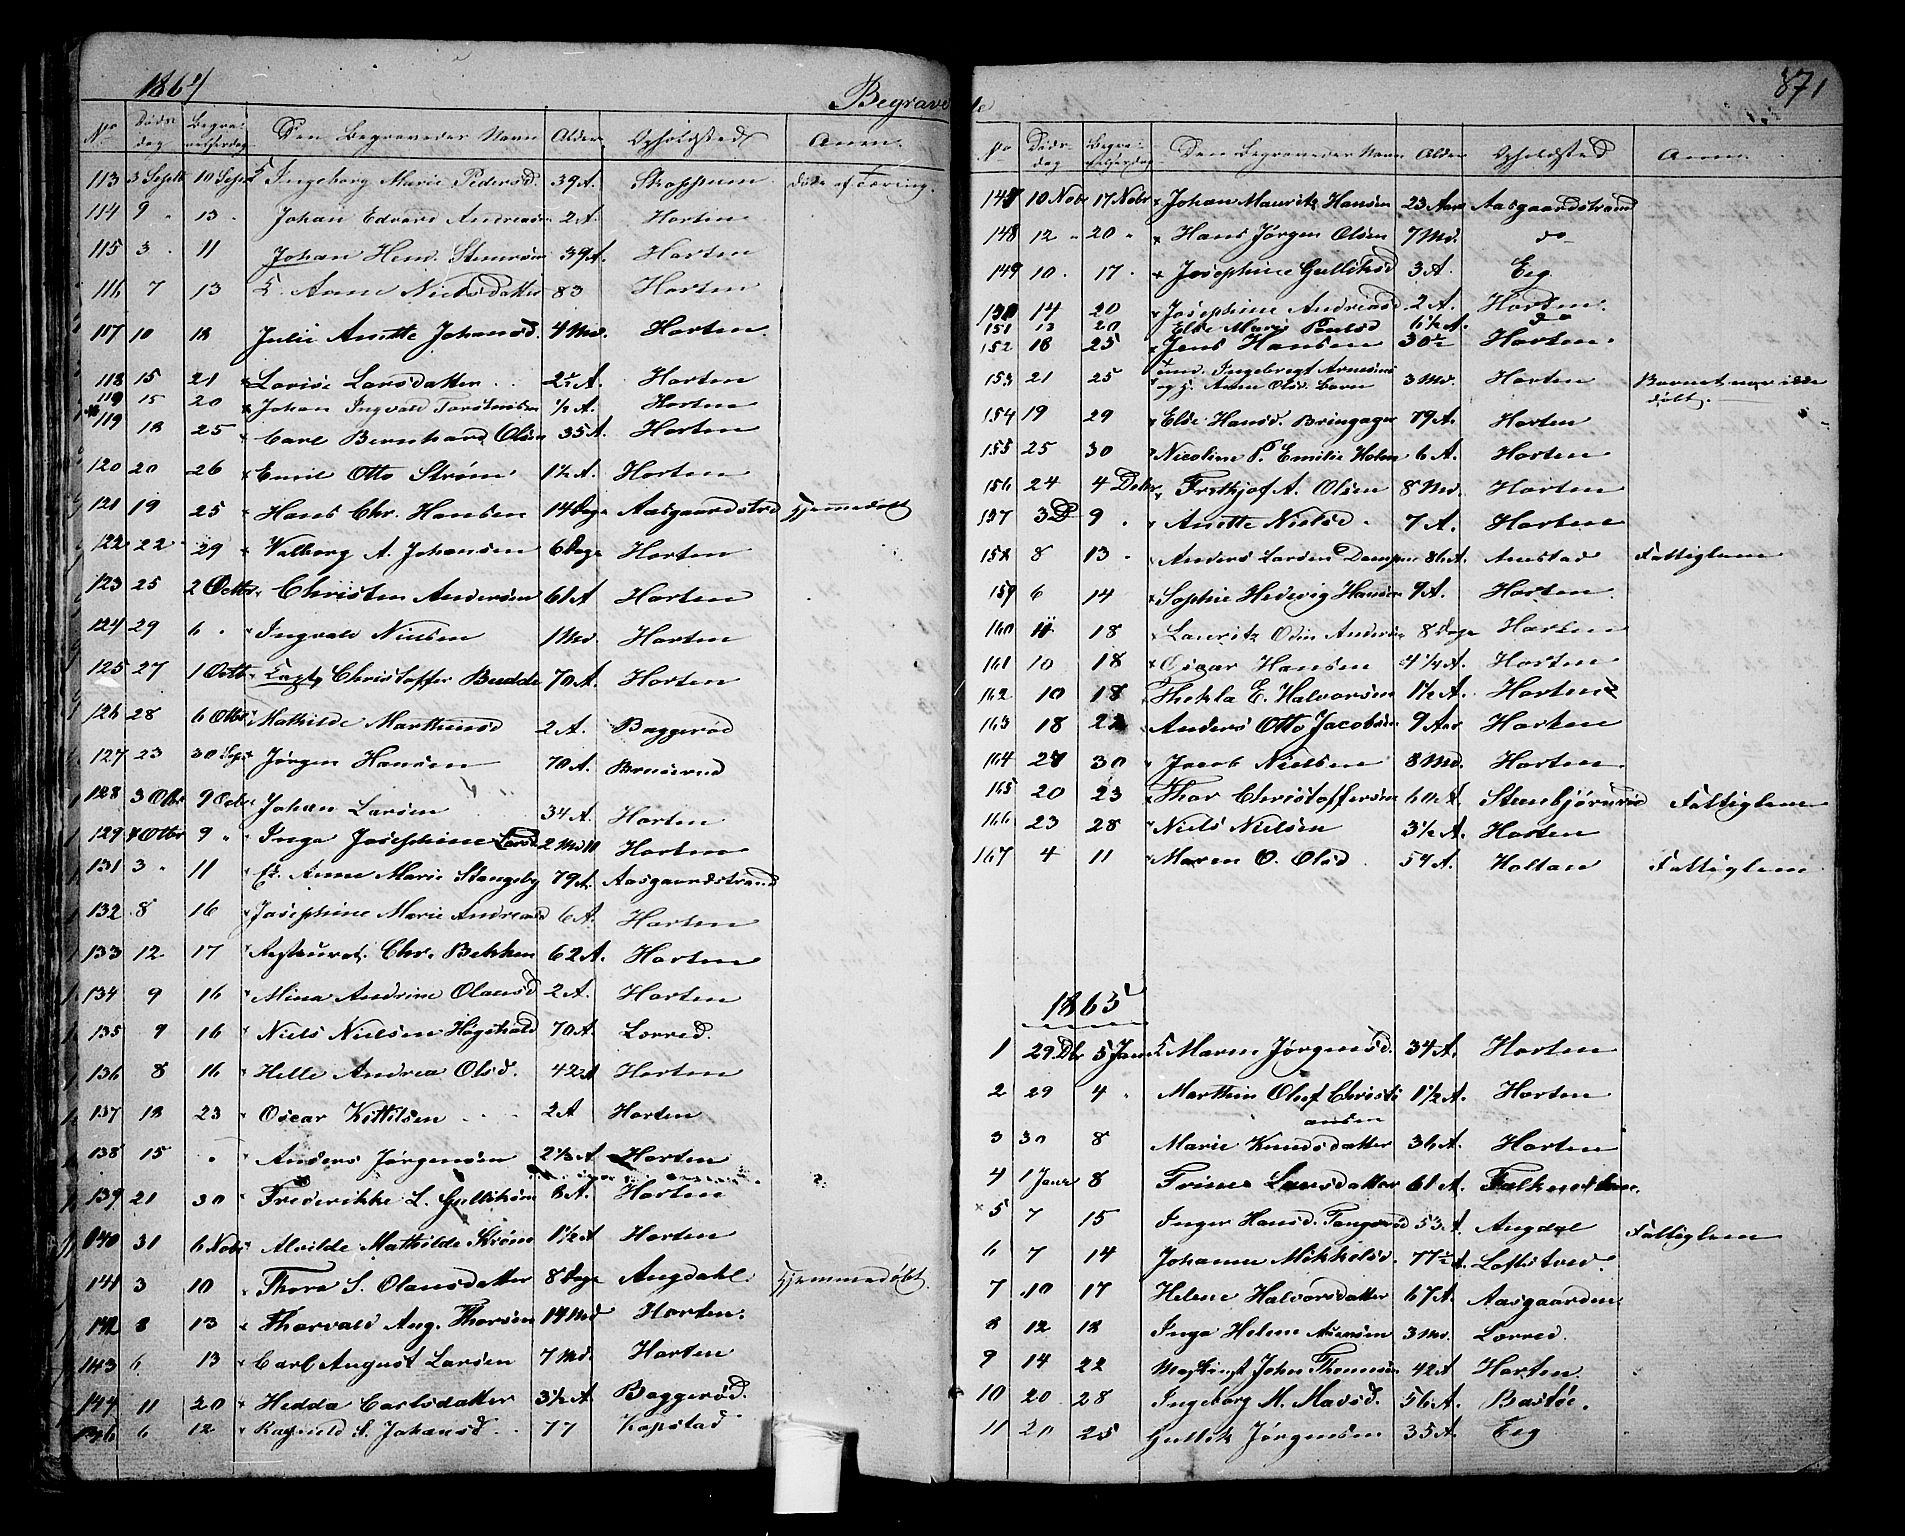 1864
Begravede
871
No Døds-dag Begravelsesdag Den Begravedes Navn Alder Opholdsted Anm.
113 3 Septb 10 Septb Ingeborg Marie Pedersd. 39 A. Skoppum døde af tæring.
114 9 " 13 " Johan Edvard Andreasen 2 A. Horten
115 3 " 11 Johan Hend. Stensrøm 39 A. Horten
116 7 13 E. Anne Nielsdatter 83 Horten
117 10 18 Julie Anette Johansd. 4 Md. Horten
118 15 21 Lovise Larsdatter 2 A. Horten
119 15 20 Johan Ingvald Torstensen ½ A. Horten
119 18 25 Carl Bernhard Olsen 35 A. Horten
120 20 26 Emil Otto Strøm 1½ A. Horten
121 19 25 Hans Chr. Hansen 14 Dage Aasgaardstrd Hjemmedøbt
122 22 29 Valborg A. Johansen 6 Dage Horten
123 25 2 Octb. Christen Andersen 61 A Horten
124 29 6 " Ingvald Nielsen 1 Md Horten
125 27 1 Octb Christoffer Budde 70 A. Horten
126 28 6 Otbr Mathilde Marthinsd 2 A. Baggerød
127 23 30 Sept Jørgen Hansen 70 A. Bruserud
128 3 Otbr 9 Octb Johan Larsen 34 A. Horten
129 4 Otbr 9 " Inga Josephine Larsd 2 Md Horten
131 3 " 11 E. Anne Marie Stangeby 79 A. Aasgaardstrand
132 8 16 Josephine Marie Andreasd 6 A. Horten
133 12 17 Chr. Bekken 62 A. Horten
134 9 16 Mina Andrine Olausd 2 A. Horten
135 9 16 Niels Nielsen 70 A. Lorred.
136 8 16 Helle Andrea Olsd. 42 A Horten
137 18 23 Oscar Kittilsen 2 A Horten
138 15 " Anders Jørgensen 2½ A Horten
139 21 30 Frederikke L. Gulliksen 8 A. Horten
140 31 6 Nobr Alvilde Mathilde Strøm 1½ A Horten
141 3 10 Thora S. Olausdatter 8 Dage Augdahl. Hjemmedøbt.
142 8 13 Thorvald Aug. Thorsen 14 Md Horten.
143 6 13 Carl August Larsen 7 Md. Horten
144 11 20 Hedda Carlsdatter 3½ A Baggerød.
146 6 12 Ragnild S. Johansd. 77 Kopstad
No Døds-dag Begravelsesdag Den Begravedes Navn Alder Opholdsted Anm.
147 10 Nobr 17 Nobr Johan Mauritz Hansen 23 Aar Aasgaardstrand
148 12 " 20 " Hans Jørgen Olsen 7 Md. do
149 10 " 17 " Josephine Gulliksd 3 A. Eeg
150 14 20 Josephine Andreasd 2 A. Horten.
151 13 20 Else Marie Poulsd 6½ A. do
152 18 25 Jens Hansen 30 Horten.
153 21 25 Ingebregt Arnesens
og H. Anne Olsd. Barn 3 Md. Horten Barnet var ikke
døbt.
154 19 29 Else Hansd. Bringager 79 A. Horten
155 25 30 Nicoline P. Emilie Holm 6 A. Horten
156 24 4 Debr Frithjof A. Olsen 8 Md. Horten
157 3 D 9 " Anette Nielsd 7 A. Horten
158 8 13 " Anders Larsen 86 A. Amstad Fattiglem
159 6 14 Sophie Hedevig Hansen 9 A. Horten
160 11 18 Lauritz Odin Andersen 8 Dage Horten
161 10 18 Oscar Hansen 4¼ A. Horten
162 10 18 Thekla E. Halvorsen 1½ A. Horten
163 18 22 Anders Otto Jacobsen 9 Aar Horten
164 27 30 Jacob Nielsen 8 Md. Horten.
165 20 23 Thor Christoffersen 60 A. Stenbjørnrød Fattiglem
166 23 28 Niels Nielsen 3½ A. Horten
167 4 11 Maren O. Olsd. 54 A. Holtan Fattiglem
1865
1 29 Dbr 5 Janr Maren Jørgensd. 34 A. Horten
2 29 4 " Marthin Oluf Christi
ansen 1½ A. Horten
3 30 8 Marie Knudsdatter 36 A. Horten
4 1 Janr 8 Trine Larsdatter 61 A.
5 7 15 Inger Hansd. 53 A Augdal Fattiglem
6 7 14 Johanne Mikkelsd. 77 A.
7 10 17 Helene Halvorsdatter 67 A. Aasgaarden
8 12 18 Inga Helene 3 Md. Lorred.
9 14 22 John Thomesen 42 A Horten.
10 20 28 Ingeborg M. Madsd. 56 A. Bastøe.
11 20 25 Gullik Jørgensen 35 A. Eeg